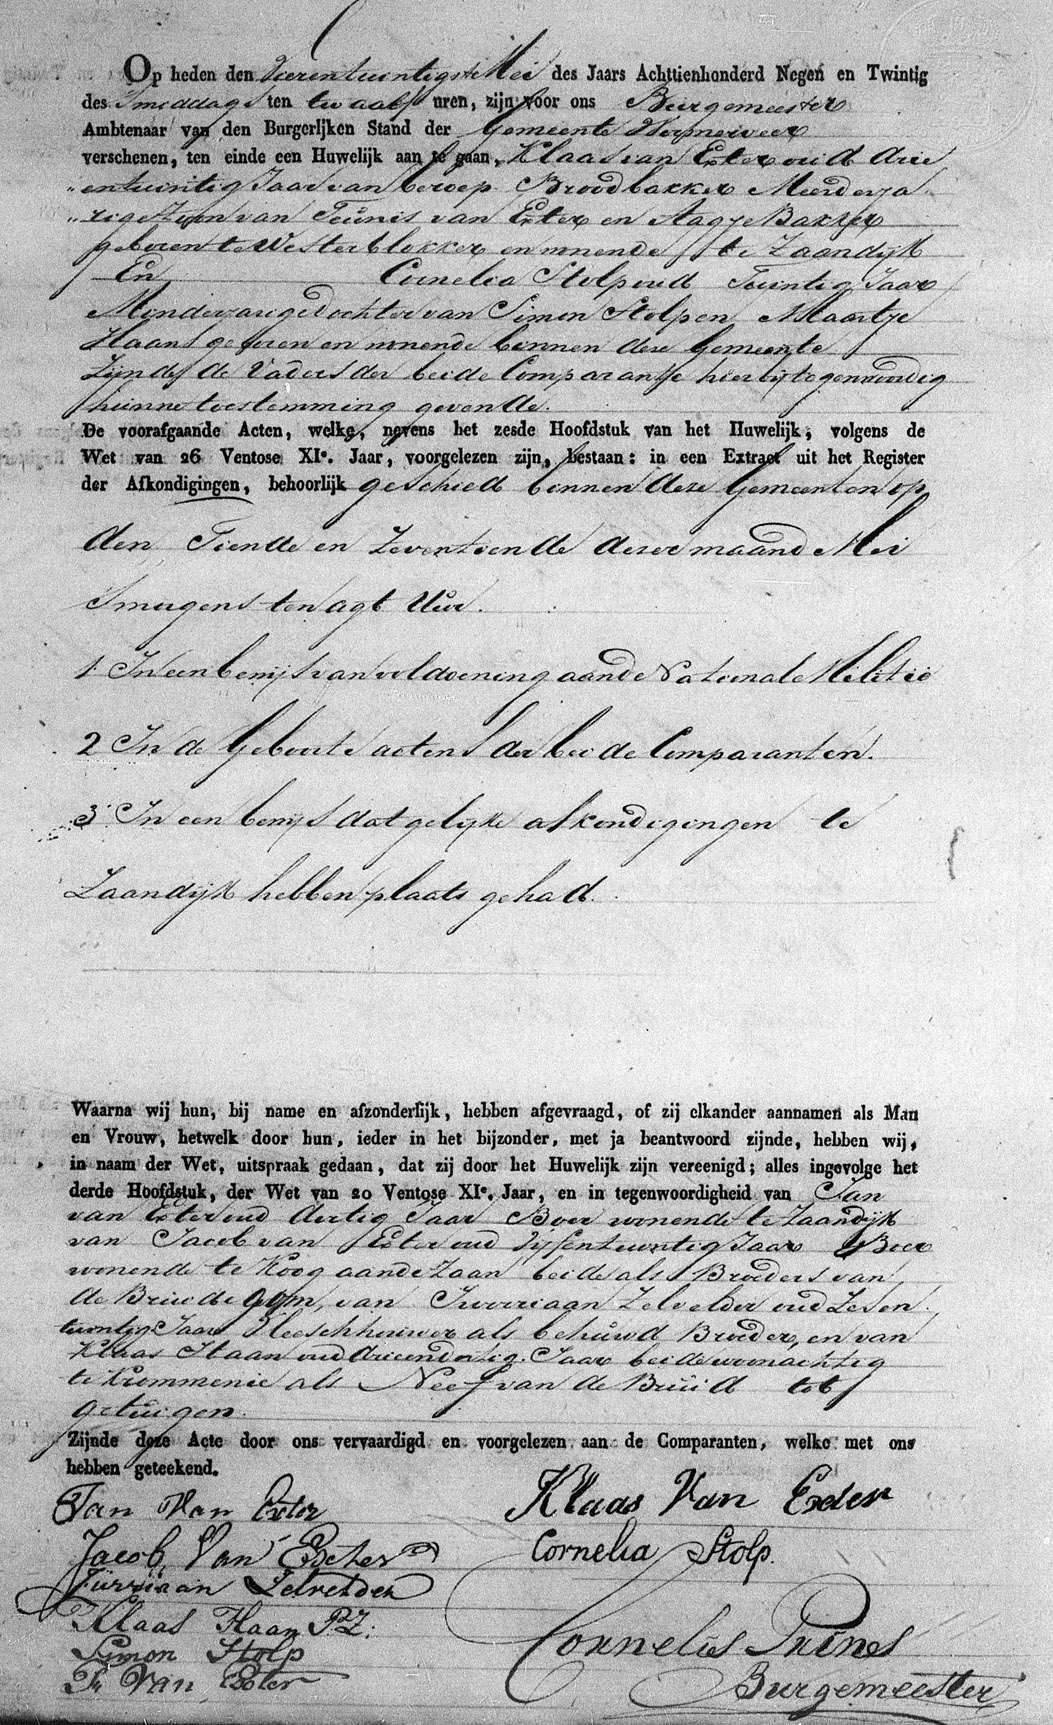 Op heden den Vierentwintigste Mei des Jaars Achttienhonderd Negen en Twintig
des smiddags ten twaalf uren, zijn voor ons Burgemeester
Ambtenaar van den Burgerlijken Stand der Gemeente Wormerveer
verschenen, ten einde een Huwelijk aan te gaan, Klaas van Exter oud drie
entwintig Jaar van beroep Broodbakker Meerderja
rige Zoon van Teunis van Exter en Aagje Bakker
geboren te Westerblokker en wonende te Zaandijk
En Cornelia Stolp oud Twintig Jaar
Minderjarige dochter van Simon Stolp en Maartje
Haan geboren en wonende binnen deze Gemeente
Zijnde de Vaders der beide Comparantse hierbij tegenwoordig
hunne toestemming gevende.
De voorafgaande Acten, welke, nevens het zesde Hoofdstuk van het Huwelijk, volgens de
Wet van 26 Ventose XIe. Jaar, voorgelezen zijn, bestaan: in een Extract uit het Register
der Afkondigingen, behoorlijk geschied binnen deze Gemeente op
den Tiende en Zeventiende dezer maand Mei
Smorgens ten agt Uur.
1 In een bewijs van voldoening aan de Nationale Militie
2 In de Geboorte actens der beide Comparanten.
3 In een bewijs dat gelijke afkondigingen te
Zaandijk hebben plaats gehad.
Waarna wij hun, bij name en afzonderlijk, hebben afgevraagd, of zij elkander aannamen als Man
en Vrouw, hetwelk door hun, ieder in het bijzonder, met ja beantwoord zijnde, hebben wij,
in naam der Wet, uitspraak gedaan, dat zij door het Huwelijk zijn vereenigd; alles ingevolge het
derde Hoofdstuk, der Wet van 20 Ventose XIe. Jaar, en in tegenwoordigheid van Jan
van Exter oud dertig Jaar Boer wonende te Zaandijk
van Jacob van Exter oud Vijfentwintig Jaar Boer
wonende te Koog aan de Zaan beide als Broeders van
de Bruidegom, van Jurriaan Zelvelder oud Zeven
twintig Jaar Vleeschhouwer als behuwd Broeder, en van
Klaas Haan oud drieendertig Jaar beide woonachtig
te Krommenie als Neef van de Bruid tot
getuigen.
Zijnde deze Acte door ons vervaardigd en voorgelezen aan de Comparanten, welke met ons
hebben geteekend.
Jan Van Exter
Klaas Van Exder
Jacob Van Excter
Cornelia Stolp.
Jurriaan Zelvelder
Klaas Haan PZ:
Simon Stolp
Cornelis Prins
T. Van Exter
Burgemeester